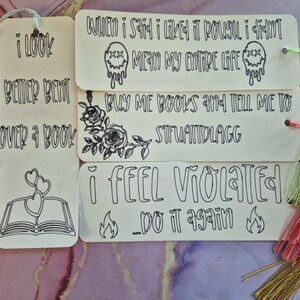 i LOOK
BETTER BENT
OVER A BOOK
WHEN I SAID I LIKED IT ROUGH, I DIDN'T
MEAN MY ENTIRE LIFE
BUY ME BOOKS AND TELL ME TO
STFUATTDLAGG
i FEEL VIOLATED
...DO IT AGAIN